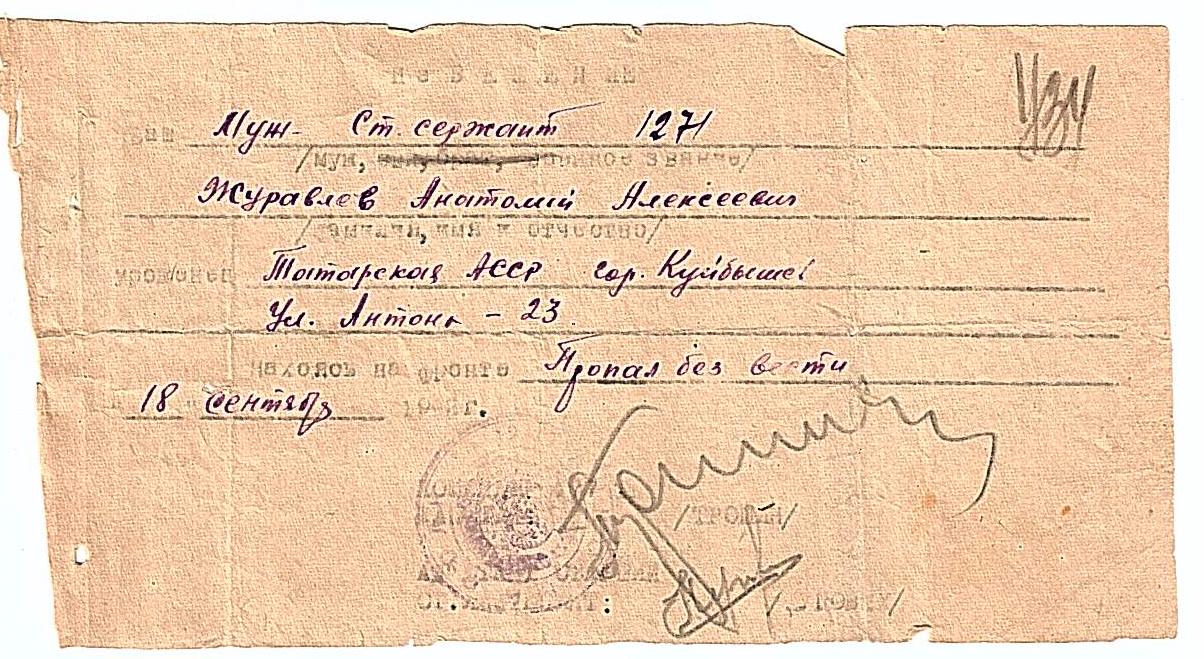 Извещение
434
Ваш Муж - Ст. сержант 1271
/муж, сын, брат, военное звание/
Журавлев Анатолий Алексеевич
/фамилия, имя и отчество/
уроженец Татарская АССР гор. Куйбышев
Ул. Антона - 23
находясь на фронте Пропал без вести
18 сентябр 194 г.
/ТРОШИН/